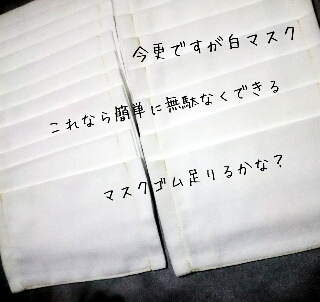 今更ですが白マスク
これなら簡単に無駄なくできる
マスクゴム足りるかな？